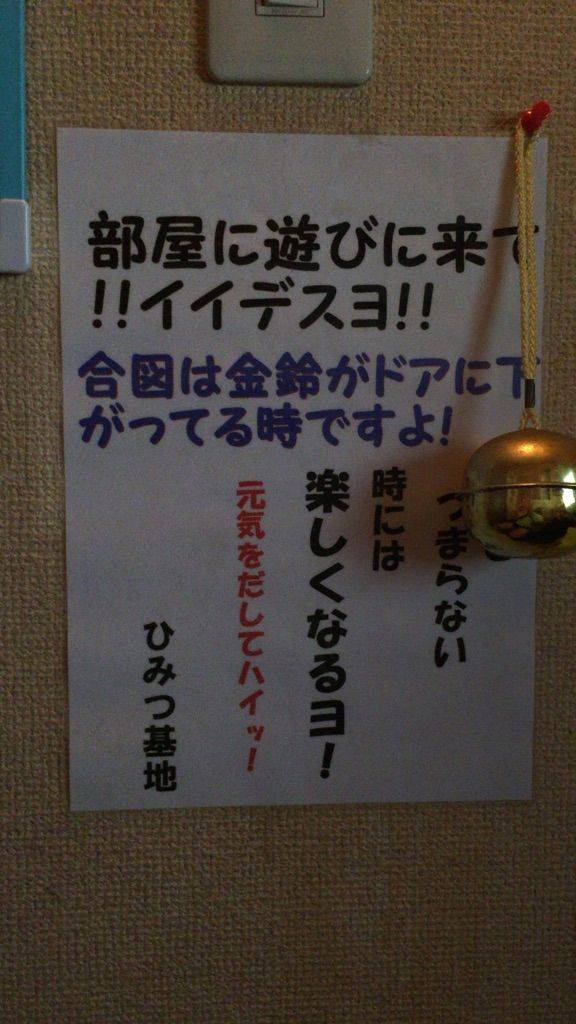 部屋に遊びに来て
!!イイデスヨ!!
合図は金鈴がドアに下
がってる時ですよ!
つまらない
時には
楽しくなるヨ!
元気をだしてハイッ!
ひみつ基地